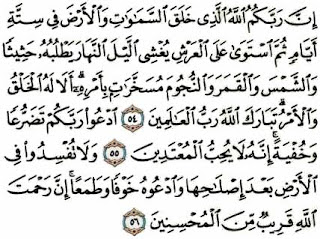 إِنَّ رَبَّكُمُ ٱللَّهُ ٱلَّذِى خَلَقَ ٱلسَّمَٰوَٰتِ وَٱلْأَرْضَ فِى سِتَّةِ
أَيَّامٍ ثُمَّ ٱسْتَوَىٰ عَلَى ٱلْعَرْشِ يُغْشِى ٱلَّيْلَ ٱلنَّهَارَ يَطْلُبُهُۥ حَثِيثًا
وَٱلشَّمْسَ وَٱلْقَمَرَ وَٱلنُّجُومَ مُسَخَّرَٰتٍۭ بِأَمْرِهِۦٓ ۗ أَلَا لَهُ ٱلْخَلْقُ
وَٱلْأَمْرُ ۗ تَبَارَكَ ٱللَّهُ رَبُّ ٱلْعَٰلَمِينَ ٥٤ ٱدْعُوا۟ رَبَّكُمْ تَضَرُّعًا
وَخُفْيَةً ۚ إِنَّهُۥ لَا يُحِبُّ ٱلْمُعْتَدِينَ ٥٥ وَلَا تُفْسِدُوا۟ فِى
ٱلْأَرْضِ بَعْدَ إِصْلَٰحِهَا وَٱدْعُوهُ خَوْفًا وَطَمَعًا ۚ إِنَّ رَحْمَتَ
ٱللَّهِ قَرِيبٌ مِّنَ ٱلْمُحْسِنِينَ ٥٦